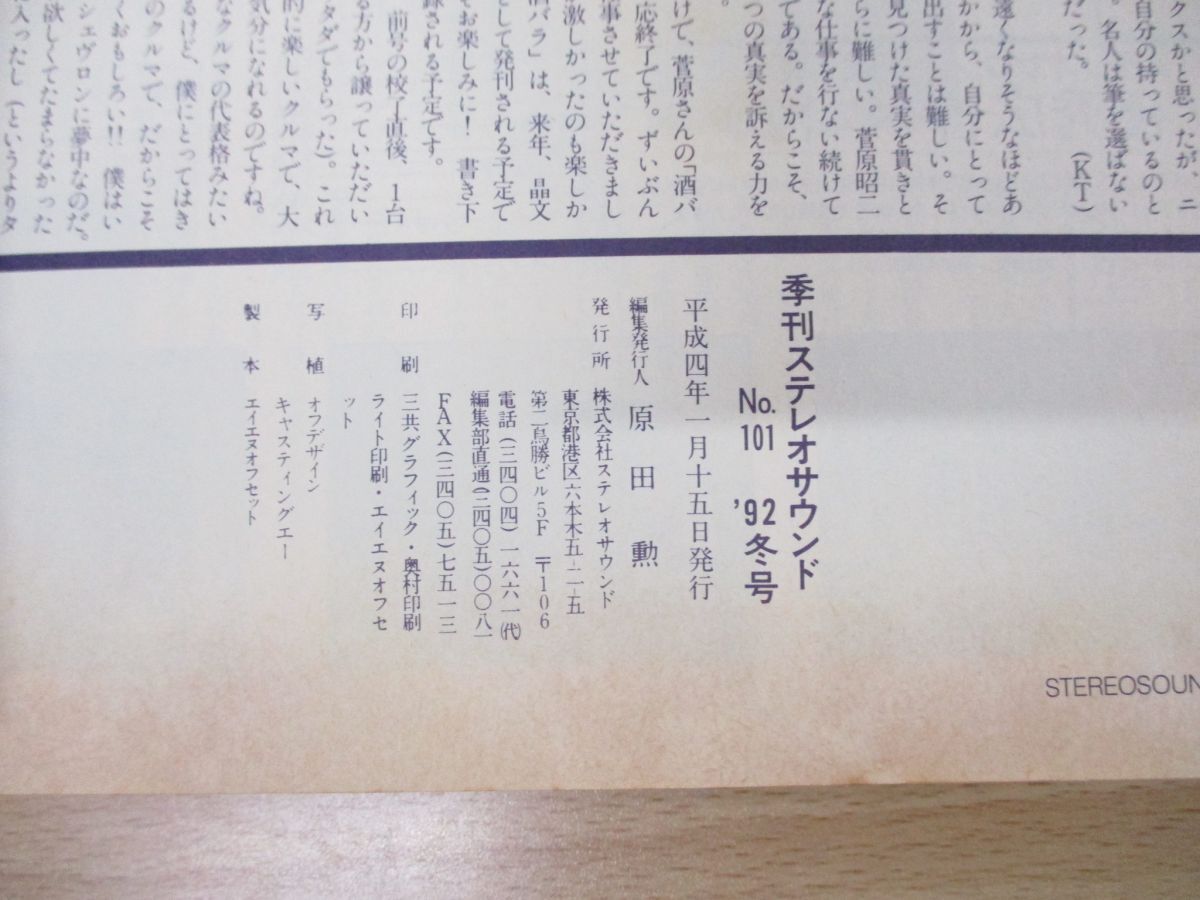 クスかと思ったが、ニ
自分の持っているのと
。名人は筆を選ばない
だった。 (KT)
遠くなりそうなほどあ
かから、自分にとって
出すことは難しい。そ
見つけた真実を貫きと
らに難しい。菅原昭二
な仕事を行ない続けて
である。だからこそ、
つの真実を訴える力を
けて、菅原さんの「酒バ
応終了です。ずいぶん
事させていただきまし
激しかったのも楽しか
酒バラ」は、来年、晶文
として発刊される予定で
お楽しみに! 書き下
録される予定です。
前号の校了直後、1台
る方から譲っていただい
タダでもらった)。これ
的に楽しいクルマで、大
気分になれるのですね。
なクルマの代表格みたい
るけど、僕にとってはき
のクルマで、だからこそ
くおもしろい!! 僕はい
シェヴロンに夢中なのだ。
欲しくてたまらなかった
入ったし(というよりタ
季刊ステレオサウンド
No.101 '92冬号
平成四年一月十五日発行
編集発行人 原田 勲
発行所 株式会社ステレオサウンド
東京都港区六本木五-二-五
第二鳥勝ビル5F 〒106
電話(三四〇四)一六六一(代)
編集部直通(三四〇五)〇〇八一
FAX(三四〇五)七五一三
印刷 三共グラフィック・奥村印刷
ライト印刷・エイエヌオフセ
ット
写植 オフデザイン
キャスティングエー
製本 エイエヌオフセット
STEREOSOUN